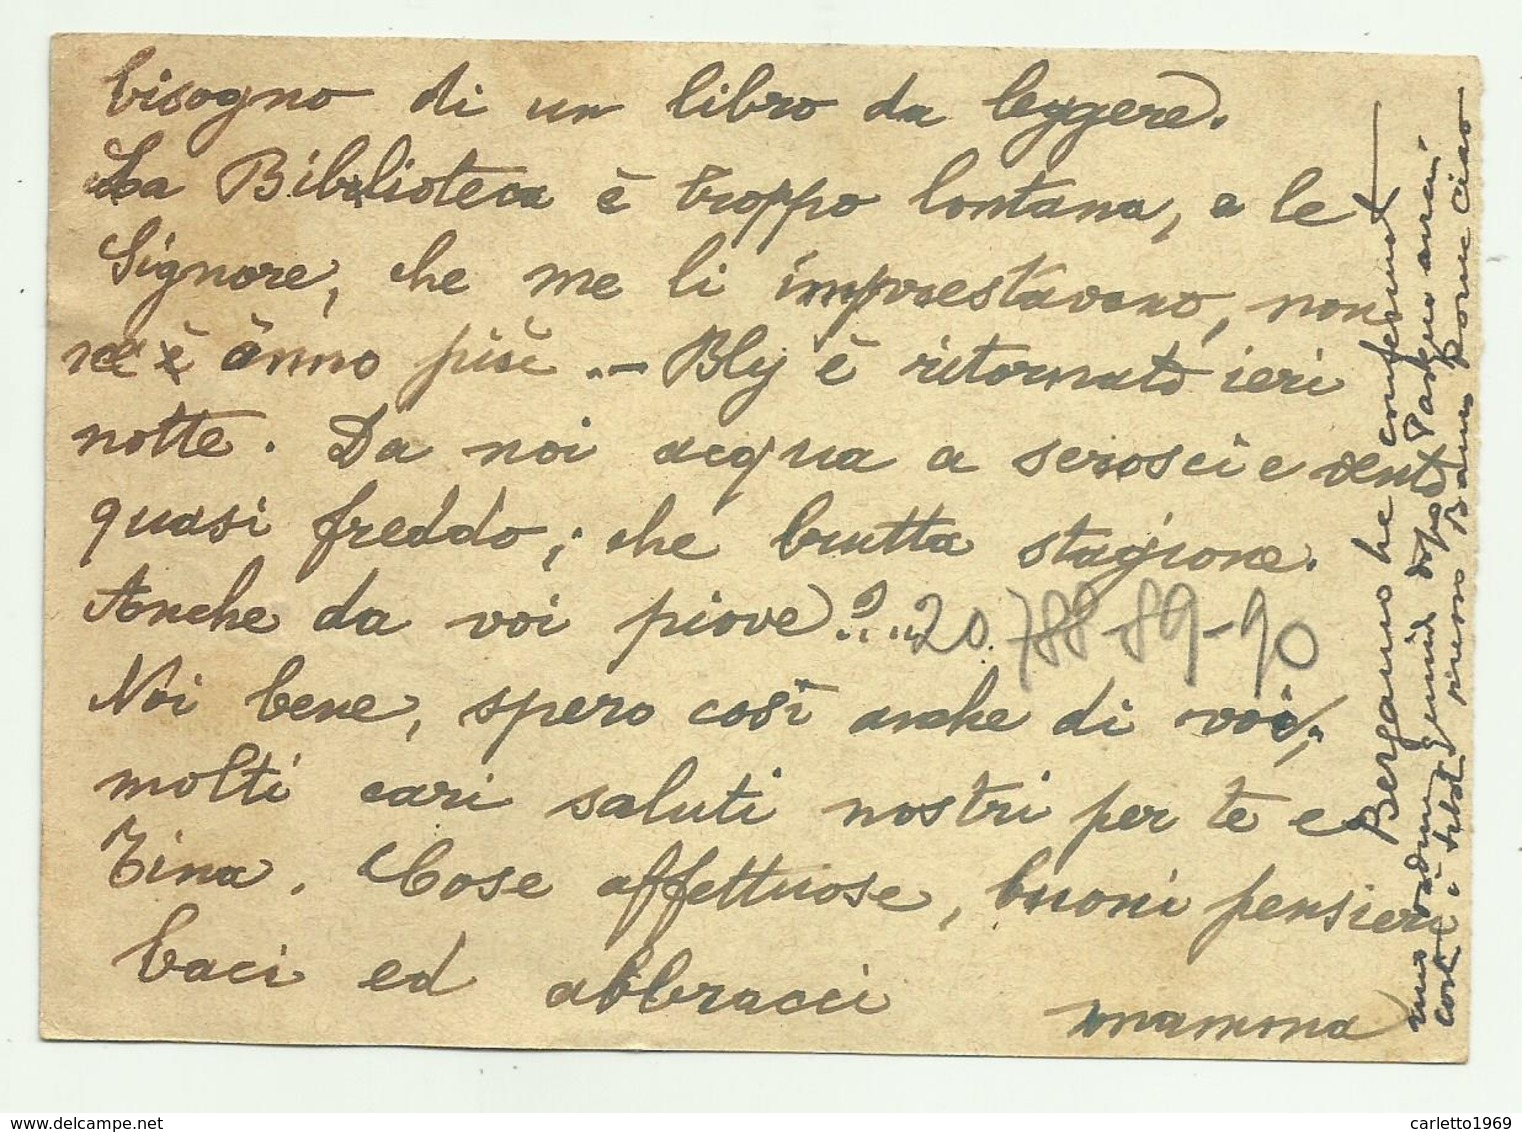 bisogno di un libro da leggere.
La Biblioteca è troppo lontana, e le
Signore, che me li imprestavano, non
ne ànno più. — Bly è ritornato ieri
notte. Da noi acqua a scrosci e vento
quasi freddo; che brutta stagione.
Anche da voi piove?...
20.788-89-90
Noi bene, spero così anche di voi,
molti cari saluti nostri per te e
Tina. Cose affettuose, buoni pensieri
baci ed abbracci
mamma
Bergamo ha
dopo Pasqua
ciao
carletto1969